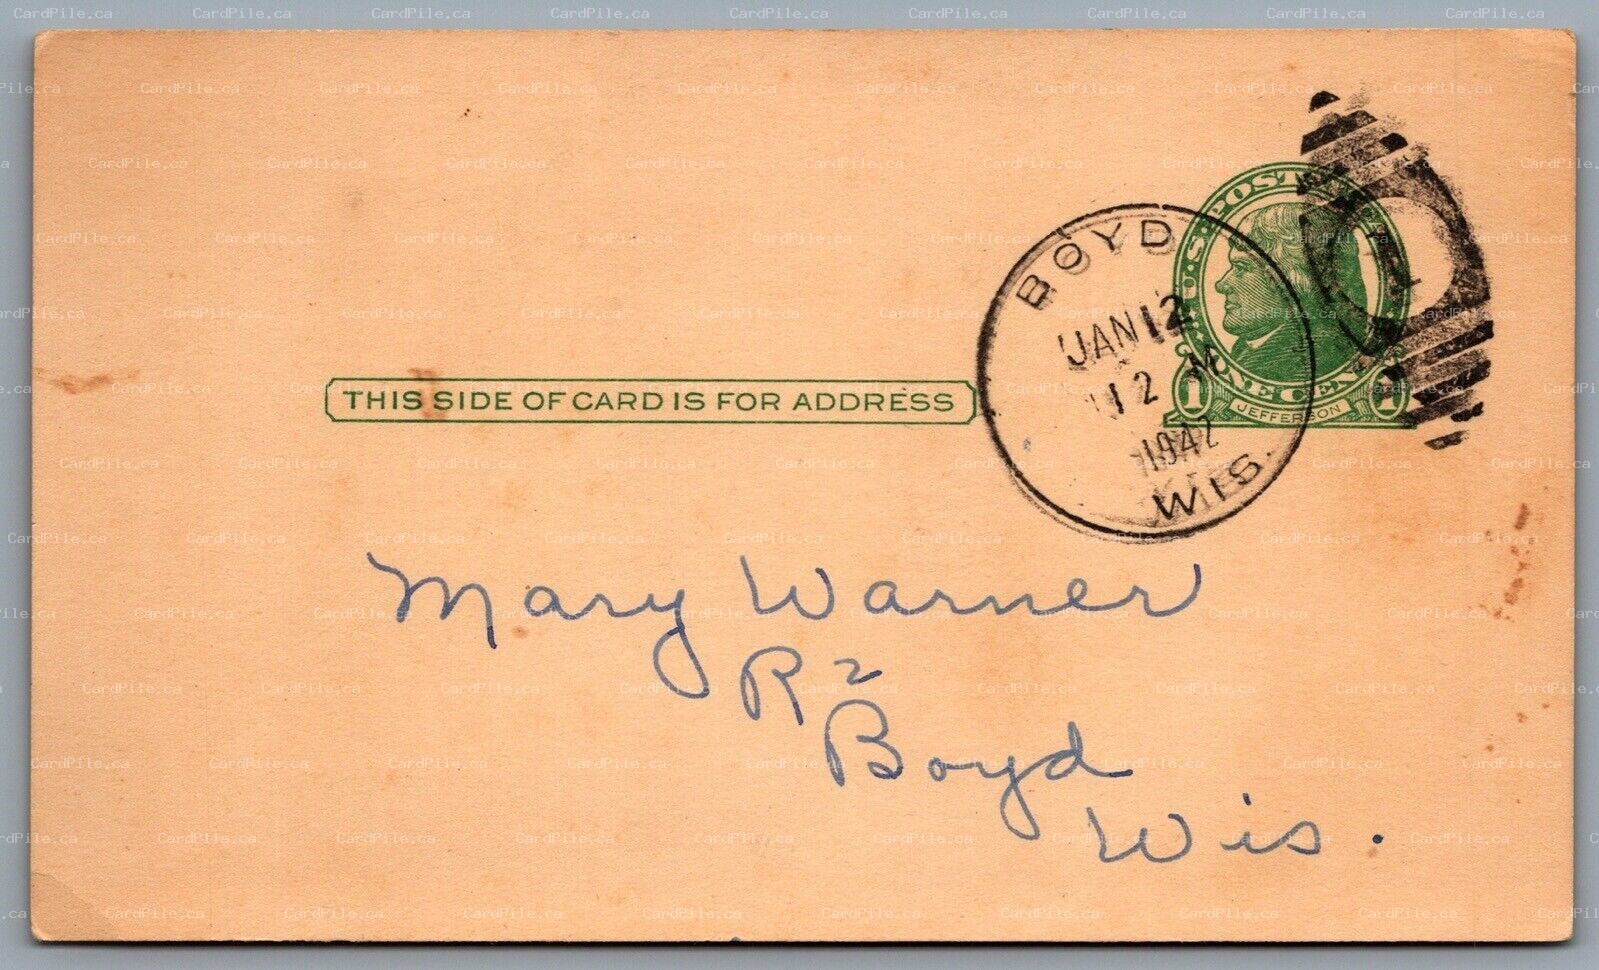 U.S. POSTAGE
BOYD
JAN 12
12 M
1942
WIS.
1 ONE CENT 1
JEFFERSON
THIS SIDE OF CARD IS FOR ADDRESS
Mary Warner
R 2
Boyd
Wis.
CardPile.ca